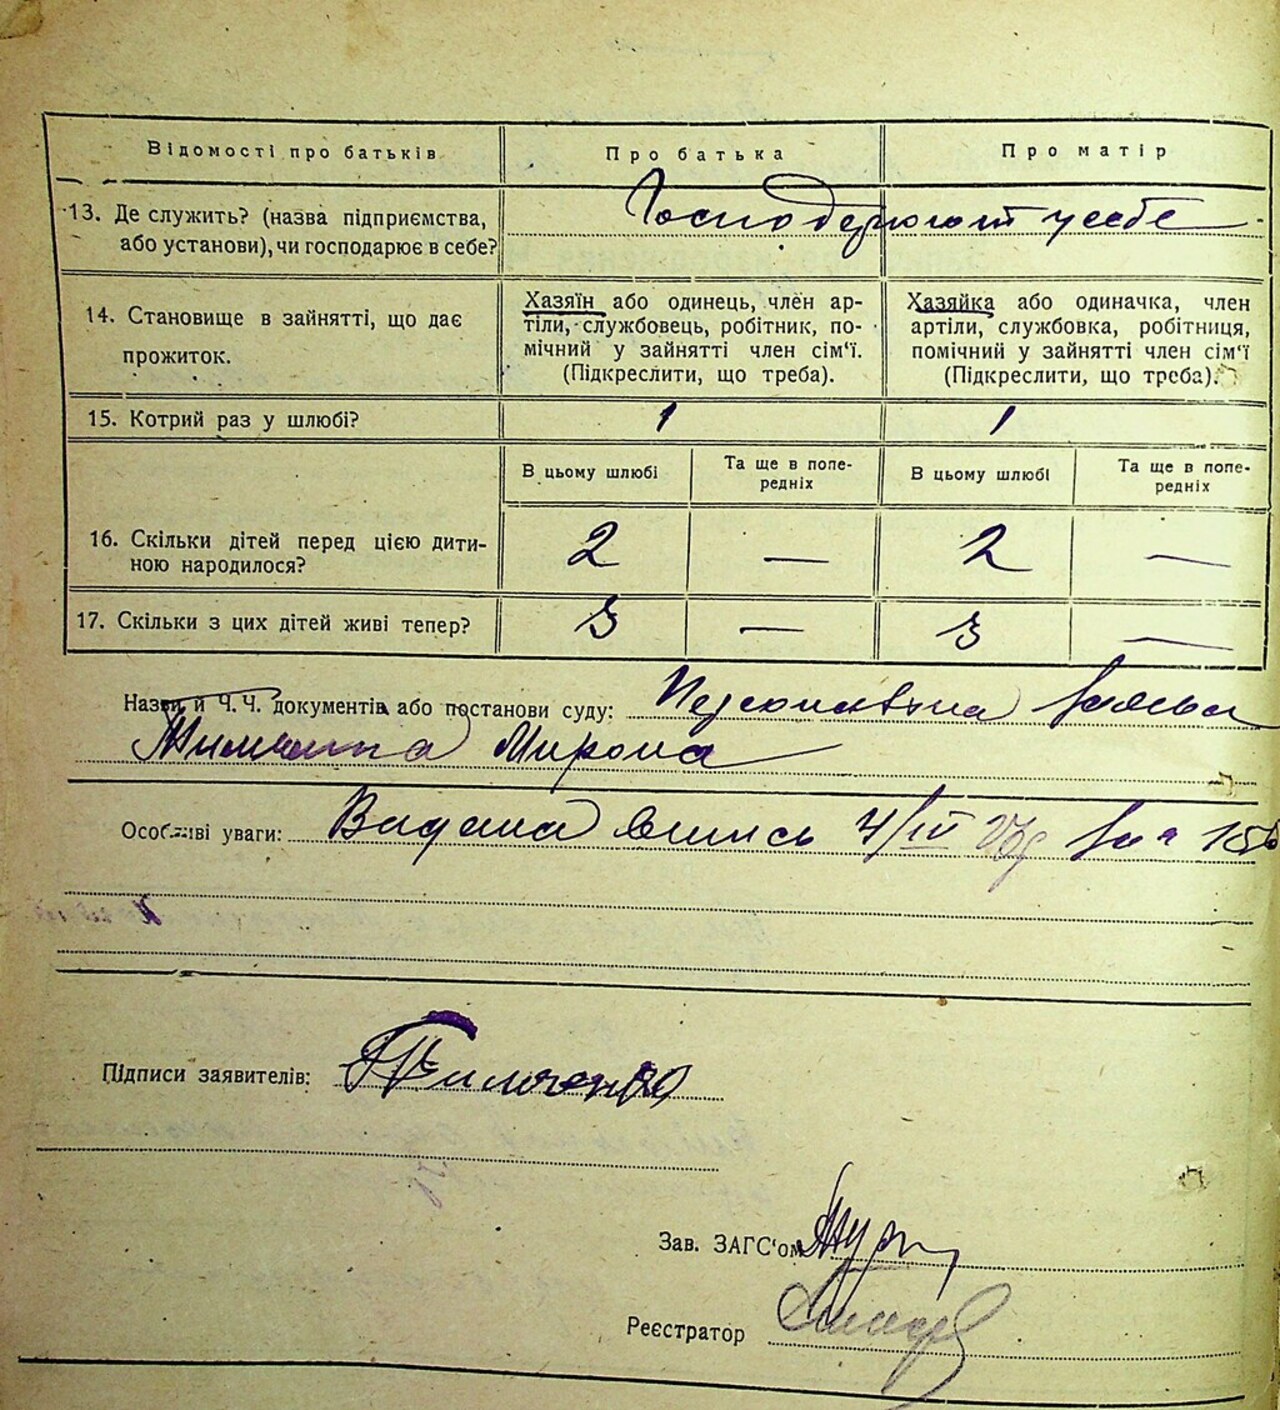 Відомості про батьків
Про батька
Про матір
13. Де служить? (назва підприємства,
або установи), чи господарює в себе?
Господарюють у себе
14. Становище в зайнятті, що дає
прожиток.
Хазяїн або одинець, член ар-
тіли, службовець, робітник, по-
мічний у зайнятті член сім'ї.
(Підкреслити, що треба).
Хазяйка або одиначка, член
артіли, службовка, робітниця,
помічний у зайнятті член сім'ї
(Підкреслити, що треба).
15. Котрий раз у шлюбі?
1
1
В цьому шлюбі
Та ще в попе-
редніх
В цьому шлюбі
Та ще в попе-
редніх
16. Скільки дітей перед цією дити-
ною народилося?
2 —
2 —
17. Скільки з цих дітей живі тепер?
3 —
3 —
Назви й Ч.Ч. документів або постанови суду:
Мирона
Особливі уваги: Видана 4/III
Підписи заявителів:
Зав. ЗАГС'ом
Реєстратор